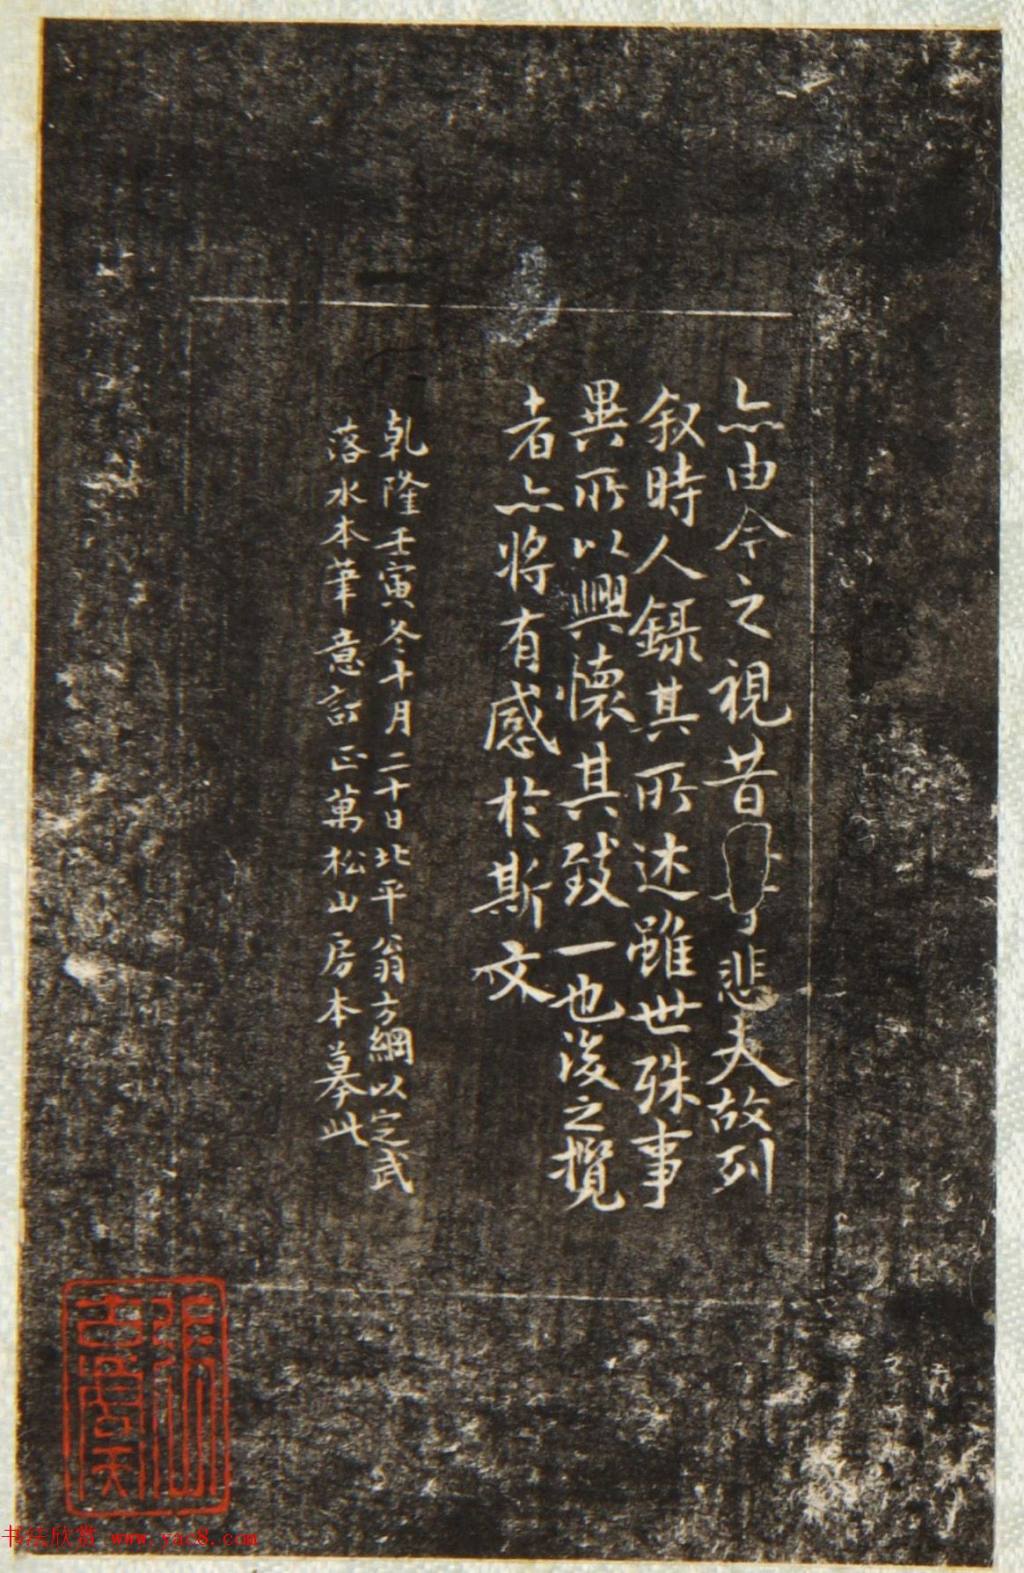 亦由今之視昔悲夫故列
叙時人錄其所述雖世殊事
異所以興懷其致一也後之攬
者亦將有感於斯文
乾隆壬寅冬十月二十日北平翁方綱以定武
落水本筆意訂正萬松山房本摹此
书法欣赏 www.yac8.com